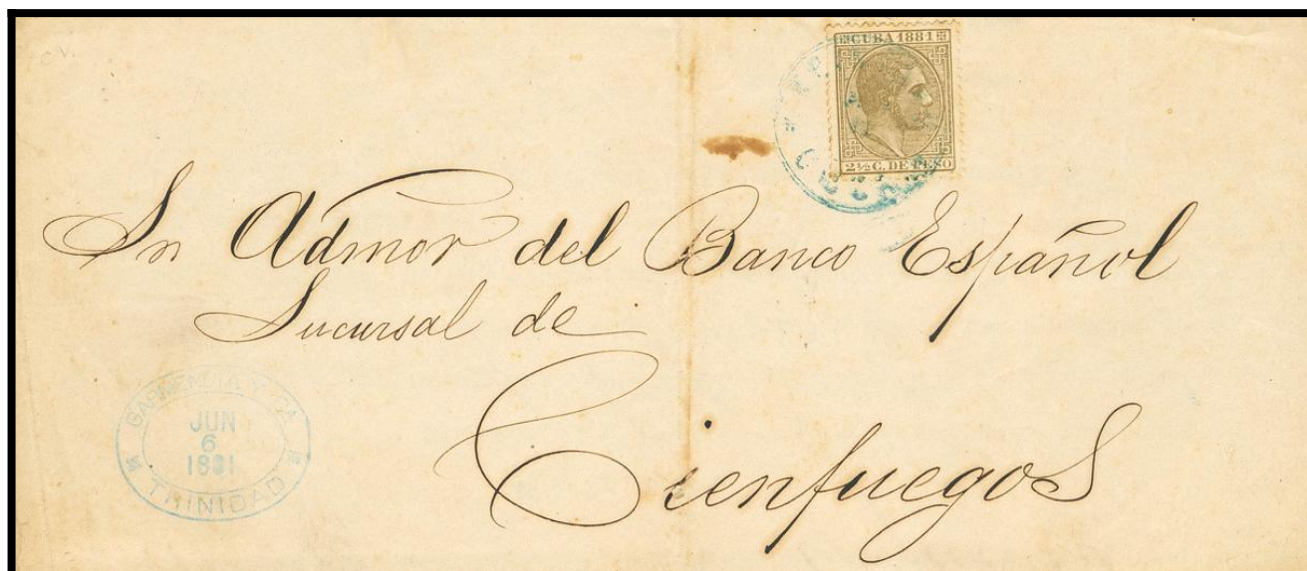 CUBA 1881
2½ C. DE PESO
Sr Admor del Banco Español
Sucursal de
Cienfuegos
JUN
6
1881
TRINIDAD